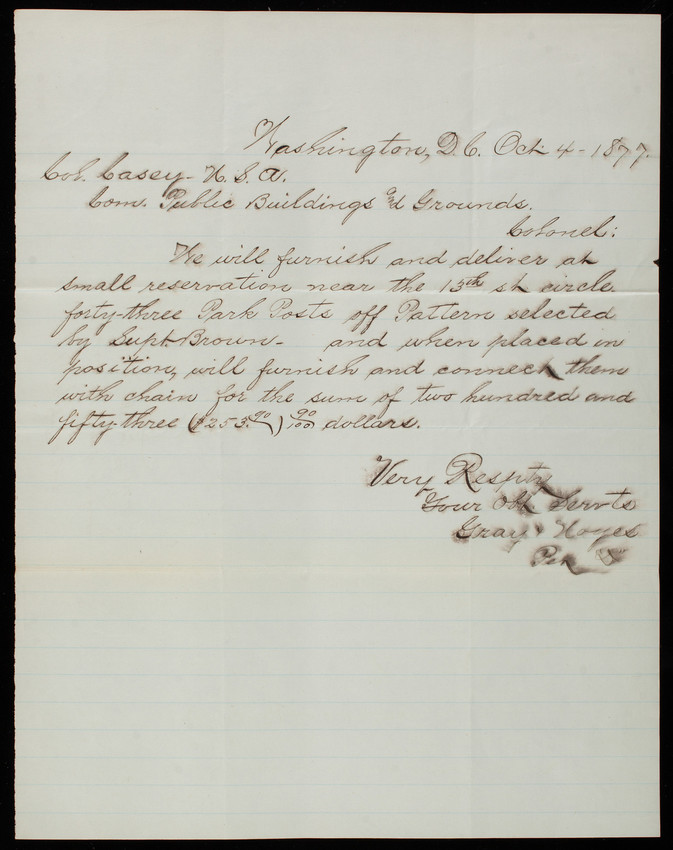 Washington, D.C. Oct 4 - 1877.
Col. Casey - U.S.A.
Com. Public Buildings and Grounds.
Colonel:
We will furnish and deliver at
small reservation near the 15th st circle
forty-three Park Posts off Pattern selected
by Supt Brown - and when placed in
position, will furnish and connect them
with chain for the sum of two hundred and
fifty-three ($253.90) 90/100 dollars.
Very Respty
Your Obt. Servts
Gray & Noyes
Per